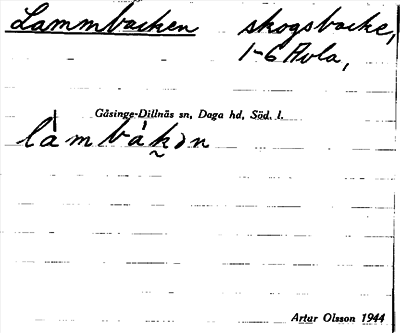 Lammbacken skogsbacke,
1-6 Avla,
Gåsinge-Dillnäs sn, Daga hd, Söd. l.
làmbákən
Artur Olsson 1944